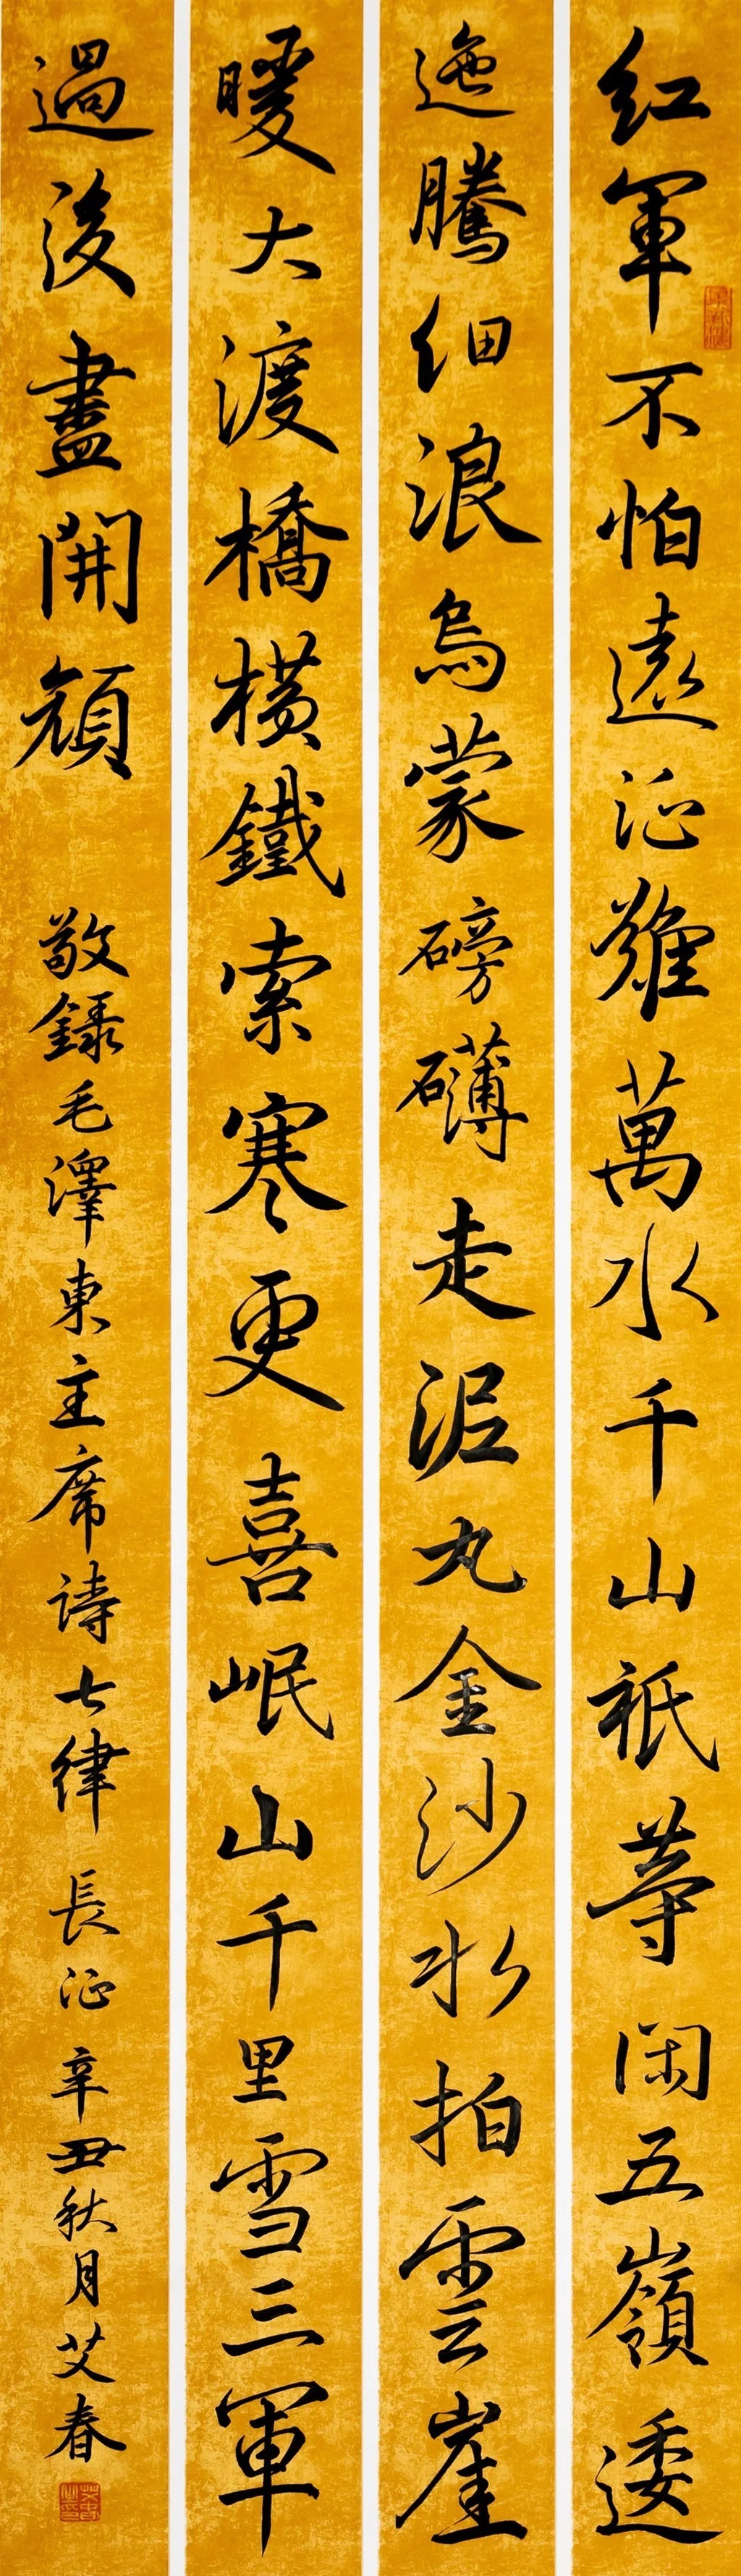 紅軍不怕遠征難萬水千山祇等閑五嶺逶
迤騰細浪烏蒙磅礴走泥丸金沙水拍雲崖
暖大渡橋橫鐵索寒更喜岷山千里雪三軍
過後盡開顏
敬錄毛澤東主席詩七律長征辛丑秋月艾春